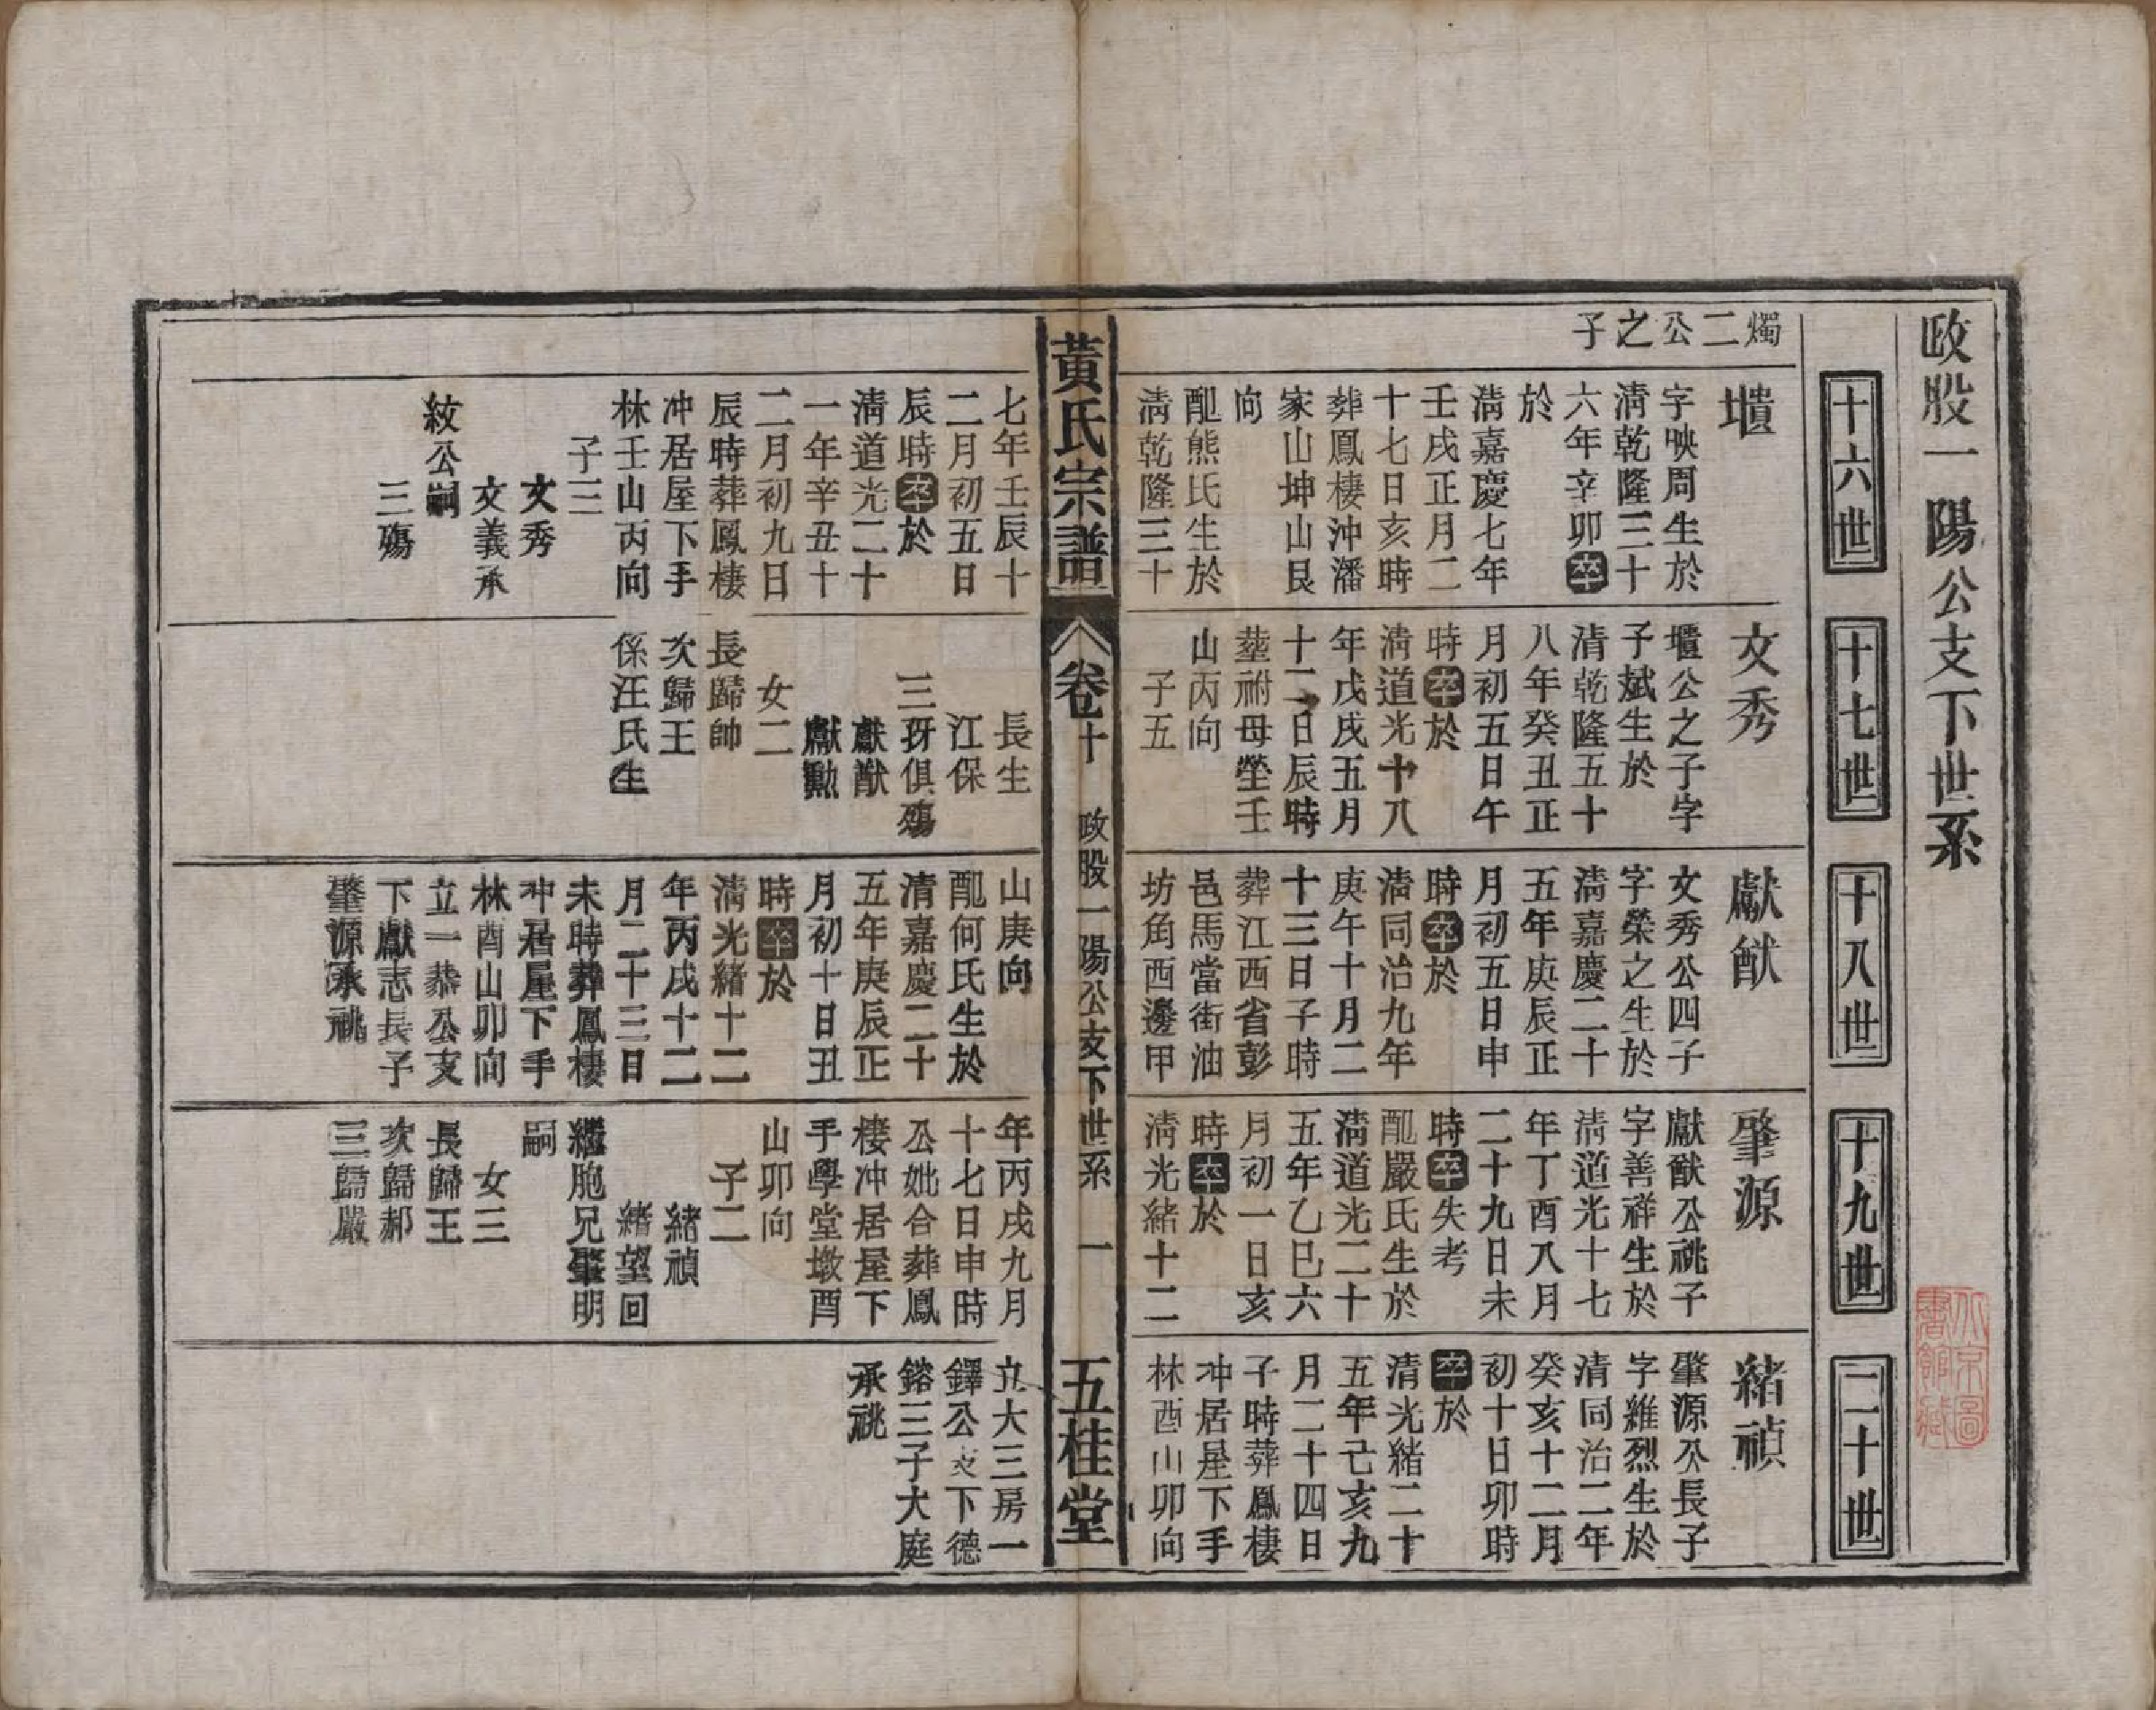 政股一陽公支下世系
十六世
十七世
十八世
十九世
二十世
燭二公之子
壝
字映周生於
淸乾隆三十
六年辛卯卒
於
淸嘉慶七年
壬戌正月二
十七日亥時
葬鳳棲沖潘
家山坤山艮
向
配熊氏生於
淸乾隆三十
七年壬辰十
二月初五日
辰時卒於
淸道光二十
一年辛丑十
二月初九日
辰時葬鳳棲
冲居屋下手
林壬山丙向
子三
文秀
文義承
紋公嗣
三殤
文秀
壝公之子字
子斌生於
清乾隆五十
八年癸丑正
月初五日午
時卒於
淸道光十八
年戊戌五月
十二日辰時
塟祔母塋壬
山丙向
子五
長生
江保
三孖俱殤
獻猷
獻勳
女二
長歸帥
次歸王
係汪氏生
獻猷
文秀公四子
字榮之生於
淸嘉慶二十
五年庚辰正
月初五日申
時卒於
淸同治九年
庚午十月二
十三日子時
葬江西省彭
邑馬當街油
坊角西邊甲
山庚向
配何氏生於
清嘉慶二十
五年庚辰正
月初十日丑
時卒於
淸光緒十二
年丙戌十二
月二十三日
未時葬鳳棲
冲居屋下手
林酉山卯向
立一恭公支
下獻志長子
肇源承祧
肇源
獻猷公祧子
字善祥生於
淸道光十七
年丁酉八月
二十九日未
時卒失考
配嚴氏生於
淸道光二十
五年乙巳六
月初一日亥
時卒於
淸光緒十二
年丙戌九月
十七日申時
公妣合葬鳳
棲冲居屋下
手學堂墩酉
山卯向
子二
緒禎
緒望回
繼胞兄肇明
嗣
女三
長歸王
次歸郝
三歸嚴
緒禎
肇源公長子
字維烈生於
清同治二年
癸亥十二月
初十日卯時
卒於
清光緒二十
五年己亥九
月二十四日
子時葬鳳棲
冲居屋下手
林酉山卯向
立大三房一
鐸公支下德
鎔三子大庭
承祧
黃氏宗譜
卷十
政股一陽公支下世系
一
五桂堂